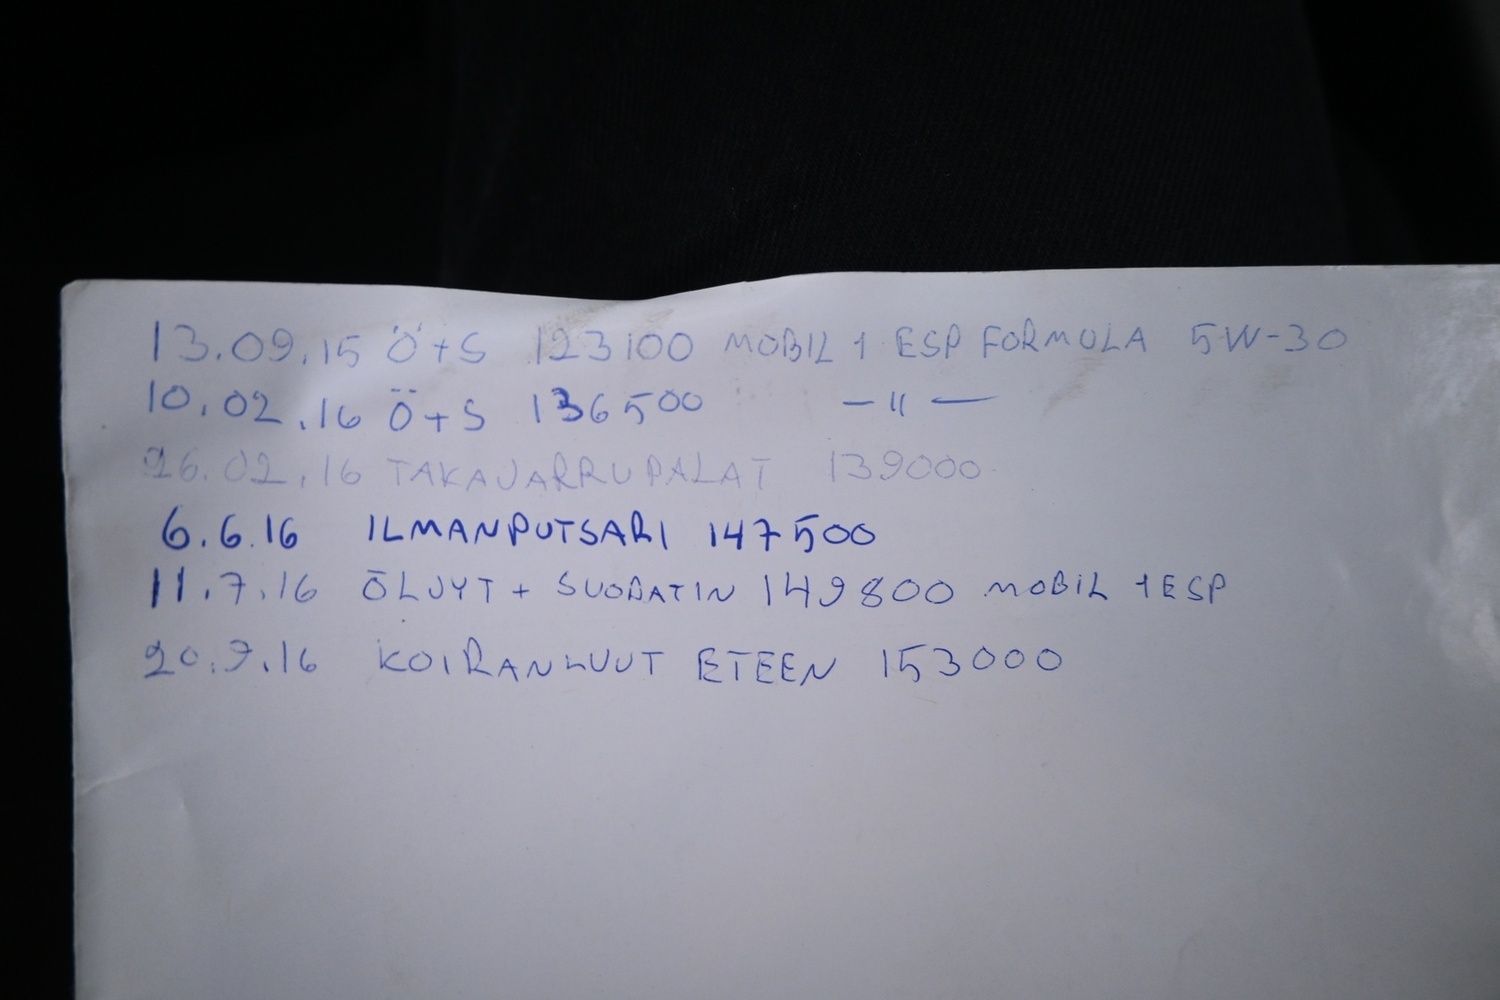 13.09.15 Ö+S 123100 MOBIL 1 ESP FORMULA 5W-30
10.02.16 Ö+S 136500 — " —
26.02.16 TAKAJARRUPALAT 139000
6.6.16 ILMANPUTSARI 147500
11.7.16 ÖLJYT + SUODATIN 149800 MOBIL 1 ESP
20.9.16 KOIRANLUUT ETEEN 153000